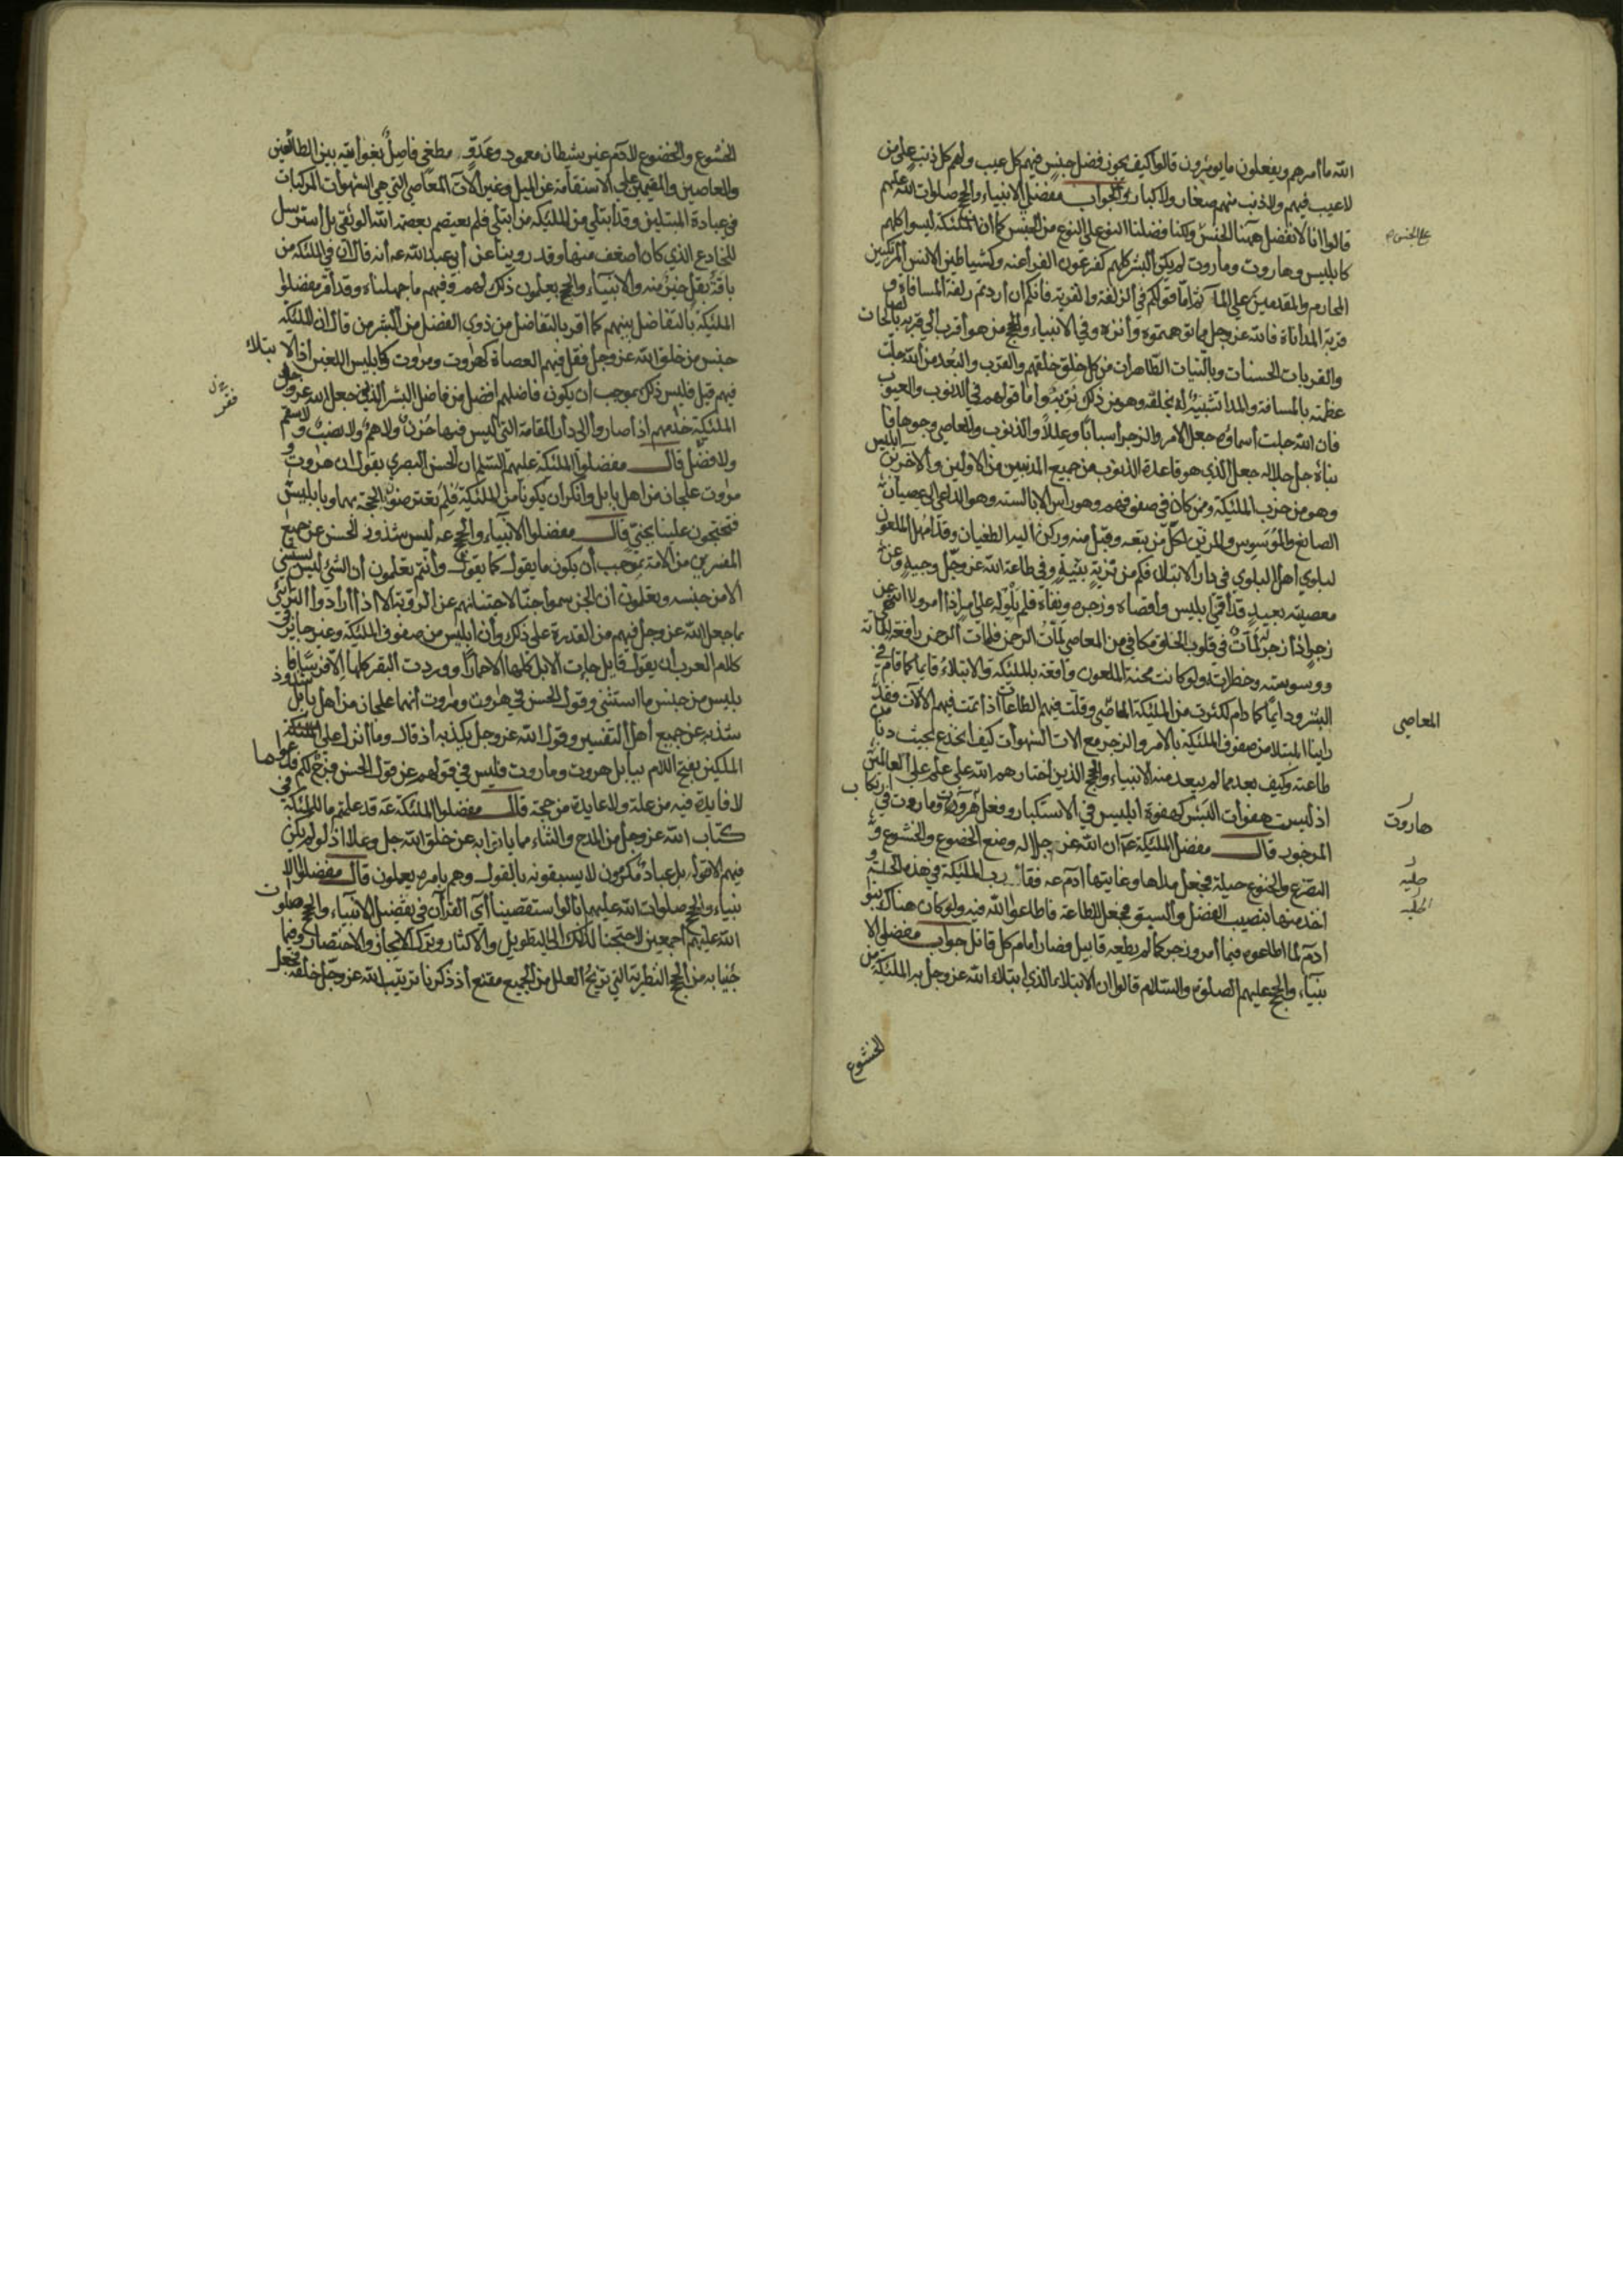 الله ما أمرهم ويفعلون ما يؤمرون قالوا كيف يجوز فضل جنس فيهم كل عيب ولهم كل ذنب على من
لا عيب فيهم ولا ذنب منهم صغار ولا كبار والجواب مفضلي الانبياء والحجج صلوات الله عليهم
قالوا انا لا نفضل ههنا الجنس ولكنا فضلنا النوع على النوع من الجنس كما ان الملئكة ليسوا كلهم
كابليس وهاروت وماروت لم يكن البشر كلهم كفرعون الفراعنه وكشياطين الانس المرتكبين
المحارم والمقدمين على المآثم اما قولكم في الزلفة والقربة فانكم ان اردتم زلفة المسافات و
قربة المداناة فالله عز وجل مما توهمتموه وأنزه وفي الانبياء والحجج من هو أقرب الى قربه بالصالحات
والقربات الحسنات وبالنيات الطاهرات من كل خلق خلقهم والقرب والبعد من الله جلت
عظمته بالمسافة والمدا تشبيه له بخلقه وهو من ذلك نزيه وأما قولهم في الذنوب والعيوب
فان الله جلت أسماؤه جعل الامر والزجر أسبابا وعللا والذنوب والمعاصي وجوها فا
نباه جل جلاله جعل الذي هو قاعدة الذنوب من جميع المذنبين من الاولين والآخرين ابليس
وهو من حزب الملئكة وممن كان في صفوفهم وهو راس الابالسته وهو الداعي الى عصيان
الصانع والموسوس والمزين لكل من تبعه وقبل منه وركن اليه الطغيان وقد امهل الملعون
لبلوي أهل البلوي في دار الابتلاء فكم من ذرية نبيه وفي طاعة الله عز وجل وجيه وعن
معصيته بعيد قد أقمأ ابليس وأقصاه وزجره ونفاه فلم يلو له على امر اذا أمر ولا انتهى عن
زجر اذا زجر له لمات في قلوب الخلق مكافي من المعاصي لمات الرحمن فلمات الرحمن دافعة للماته
ووسوسته وخطراته ولو كانت محنته الملعون واقعة بالملئكة والابتلاء به قايما كما قام في
البشر ودايما كما دام لكثرت من الملئكة المعاصي وقلت فيهم الطاعات اذا تمت فيهم الآلات فقد
راينا المبتلا من صفوف الملئكة بالامر والزجر مع الات الشهوات كيف انخدع بحيث دنا من
طاعته وكيف بعد مما لم يبعد منه الانبياء والحجج الذين اختارهم الله على علم على العالمين
اذ ليست هفوات البشر كهفوة ابليس في الاستكبار وفعل هروت وماروت في ارتكاب
المزجور قال مفضل الملئكة عم ان الله عز جلاله وضع الخضوع والخشوع و
التضرع والخنوع حيلة فجعل مداها وغايتها أدم عه فقا رب الملئكة في هذه الحلة و
اخذ منها بنصيب الفضل والسبق فجعل للطاعة فاطاعوا الله فيه ولو كان هناك بنو
آدم لما اطاعوه فيما أمر وزجر كما لم يطعه قابيل فصار أمام كل قاتل جواب مفضلوا الا
نبياء والحجج عليهم الصلوة والسلام قالوا ان الابتلاء الذي ابتلاء الله عز وجل به الملئكة من
الخشوع
المعاصي
هاروت
حليه
الحليه
الخشوع والخضوع لادم عن شيطان معمود وعدو مطغى فاصل بغوايته بين الطائعين
والعاصين والمقيمين على الاستقامة عن الميل وغير الآت المعاصي التي هي الشهوات المركبات
في عبادة المبتلين وقد ابتلي من الملئكة من ابتلي فلم يعتصم بعصمة الله الوثقى بل استرسل
للخادع الذي كان أضعف منها وقد روينا عن أبي عبد الله عه أنه قال ان في الملئكة من
باقة بقل خير منه والانبياء والحجج يعلمون ذلك لهم وفيهم ما جهلناه وقد أقر مفضلوا
الملئكة بالتفاضل بينهم كما أقر بالتفاضل من ذوي الفضل من البشر من قال ان الملئكة
جنس من خلق الله عز وجل فقل فيهم العصاة كهروت ومروت وكابليس اللعين اذ الابتلاء
فيهم قبل فليس ذلك بموجب أن يكون فاضلهم أفضل من فاضل البشر الذين جعل الله عز وجل
الملئكة خدمهم اذا صاروا الى دار المقامة التي ليس فيها حزن ولا هم ولا نصب ولا سقم
ولا فضل قال مفضلوا الملئكة عليهم السلم ان الحسن البصري يقول ان هروت و
مروت علجان من اهل بابل وأنكر ان يكونا من الملئكة فلم تعترضون الحجة بهما وبابليس
فتحتجون علينا بجني قال مفضلوا الانبياء والحجج عه ليس شذوذ الحسن عن جميع
المفسرين من الامة بموجب أن يكون ما يقول كما يقول وأنتم تعلمون أن الشئ ليس يستثنى
الا من جنسه وتعلمون ان الجن سموا جنا لاجتنانهم عن الرؤية الا اذا أرادوا الترائي
بما جعل الله عز وجل فيهم من القدرة على ذلك وأن ابليس من صفوف الملئكة وغير جايز في
كلام العرب أن يقول قايل جاءت الابل كلها الا حمارا ووردت البقر كلها الا فرسا فا
بليس من جنس ما استثنى وقول الحسن في هروت ومروت أنهما علجان من أهل بابل شذوذ
شذ به عن جميع أهل التفسير وقول الله عز وجل يكذبه اذ قال وما أنزل على الملئكة
الملكين بفتح اللام ببابل هروت وماروت فليس في قولهم عن قول الحسن فرج لكم فدعوا ما
لا فايدة فيه من علة ولا عايدة من حجة قال مفضلوا الملئكة عه قد علمتم ما للملئكة في
كتاب الله عز وجل من المدح والثناء مما بانوا به عن خلق الله جل وعلا اذ لو لم يكن
فيهم الا قوله بل عباد مكرمون لا يسبقونه بالقول وهم بامره يعملون قال مفضلوا الا
نبياء والحجج صلوات الله عليهم انا لو استقصينا آي القرآن في تفضيل الانبياء والحجج صلوات
الله عليهم أجمعين لاحتجنا لذلك الى التطويل والاكثار وترك الايجاز والاختصار وفيما
جئنا به من الحجج النظرية التي تزيح العلل من الجميع مقنع اذ ذكرنا ترتيب الله عز وجل خلقه فجعل